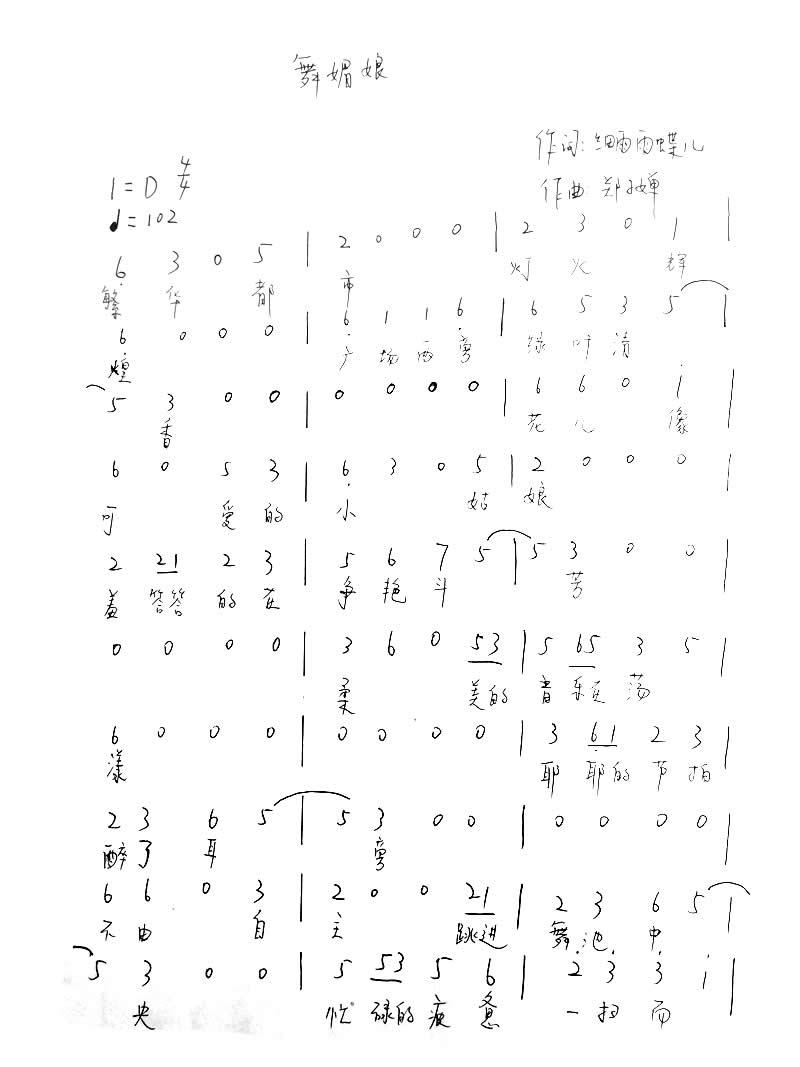 舞媚娘
作词:细雨雨蝶儿
1=D 4/4
作曲 郑子婵
♩=102
6 3 0 5 | 2 0 0 0 | 2 3 0 1 |
繁 华 都 市 灯 火 辉
6 0 0 0 | 6 1 1 6 | 6 5 3 5 |
煌 广 场 两 旁 绿 叶 清
5 3 0 0 | 0 0 0 0 | 6 6 0 i |
香 花 儿 像
6 0 5 3 | 6 3 0 5 | 2 0 0 0 |
可 爱 的 小 姑 娘
2 21 2 3 | 5 6 7 5 | 5 3 0 0 |
羞 答答 的 在 争 艳 斗 芳
0 0 0 0 | 3 6 0 53 | 5 65 3 5 |
柔 美的 音 乐在 荡
6 0 0 0 | 0 0 0 0 | 3 61 2 3 |
漾 耶 耶的 节 拍
2 3 6 5 | 5 3 0 0 | 0 0 0 0 |
醉 了 耳 旁
6 6 0 3 | 2 0 0 21 | 2 3 6 5 |
不 由 自 主 跳进 舞 池 中
5 3 0 0 | 5 53 5 6 | 2 3 3 i |
央 忙 碌的 疲 惫 一 扫 而